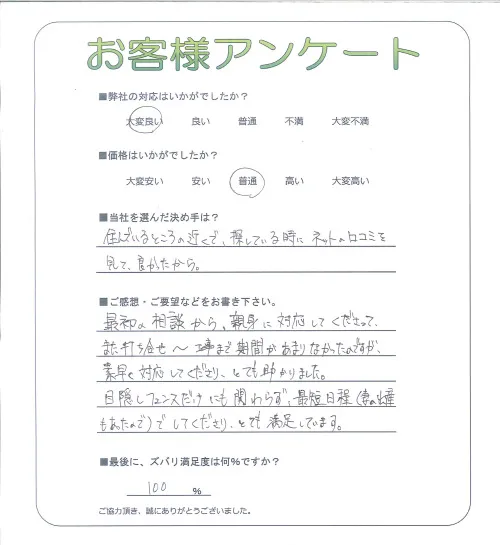 お客様アンケート
■弊社の対応はいかがでしたか?
大変良い 良い 普通 不満 大変不満
■価格はいかがでしたか?
大変安い 安い 普通 高い 大変高い
■当社を選んだ決め手は?
住んでいるところの近くで、探している時に ネットの口コミを
見て、良かったから。
■ご感想・ご要望などをお書き下さい。
最初の相談から、親身に対応してくださって、
また打ち合せ〜工事まで期間があまりなかったのですが、
素早く対応してくださり、とても助かりました。
目隠しフェンスだけにも関わらず、最短日程(妻の出産
もあったので)でしてくださり、とても満足しています。
■最後に、ズバリ満足度は何%ですか?
100 %
ご協力頂き、誠にありがとうございました。